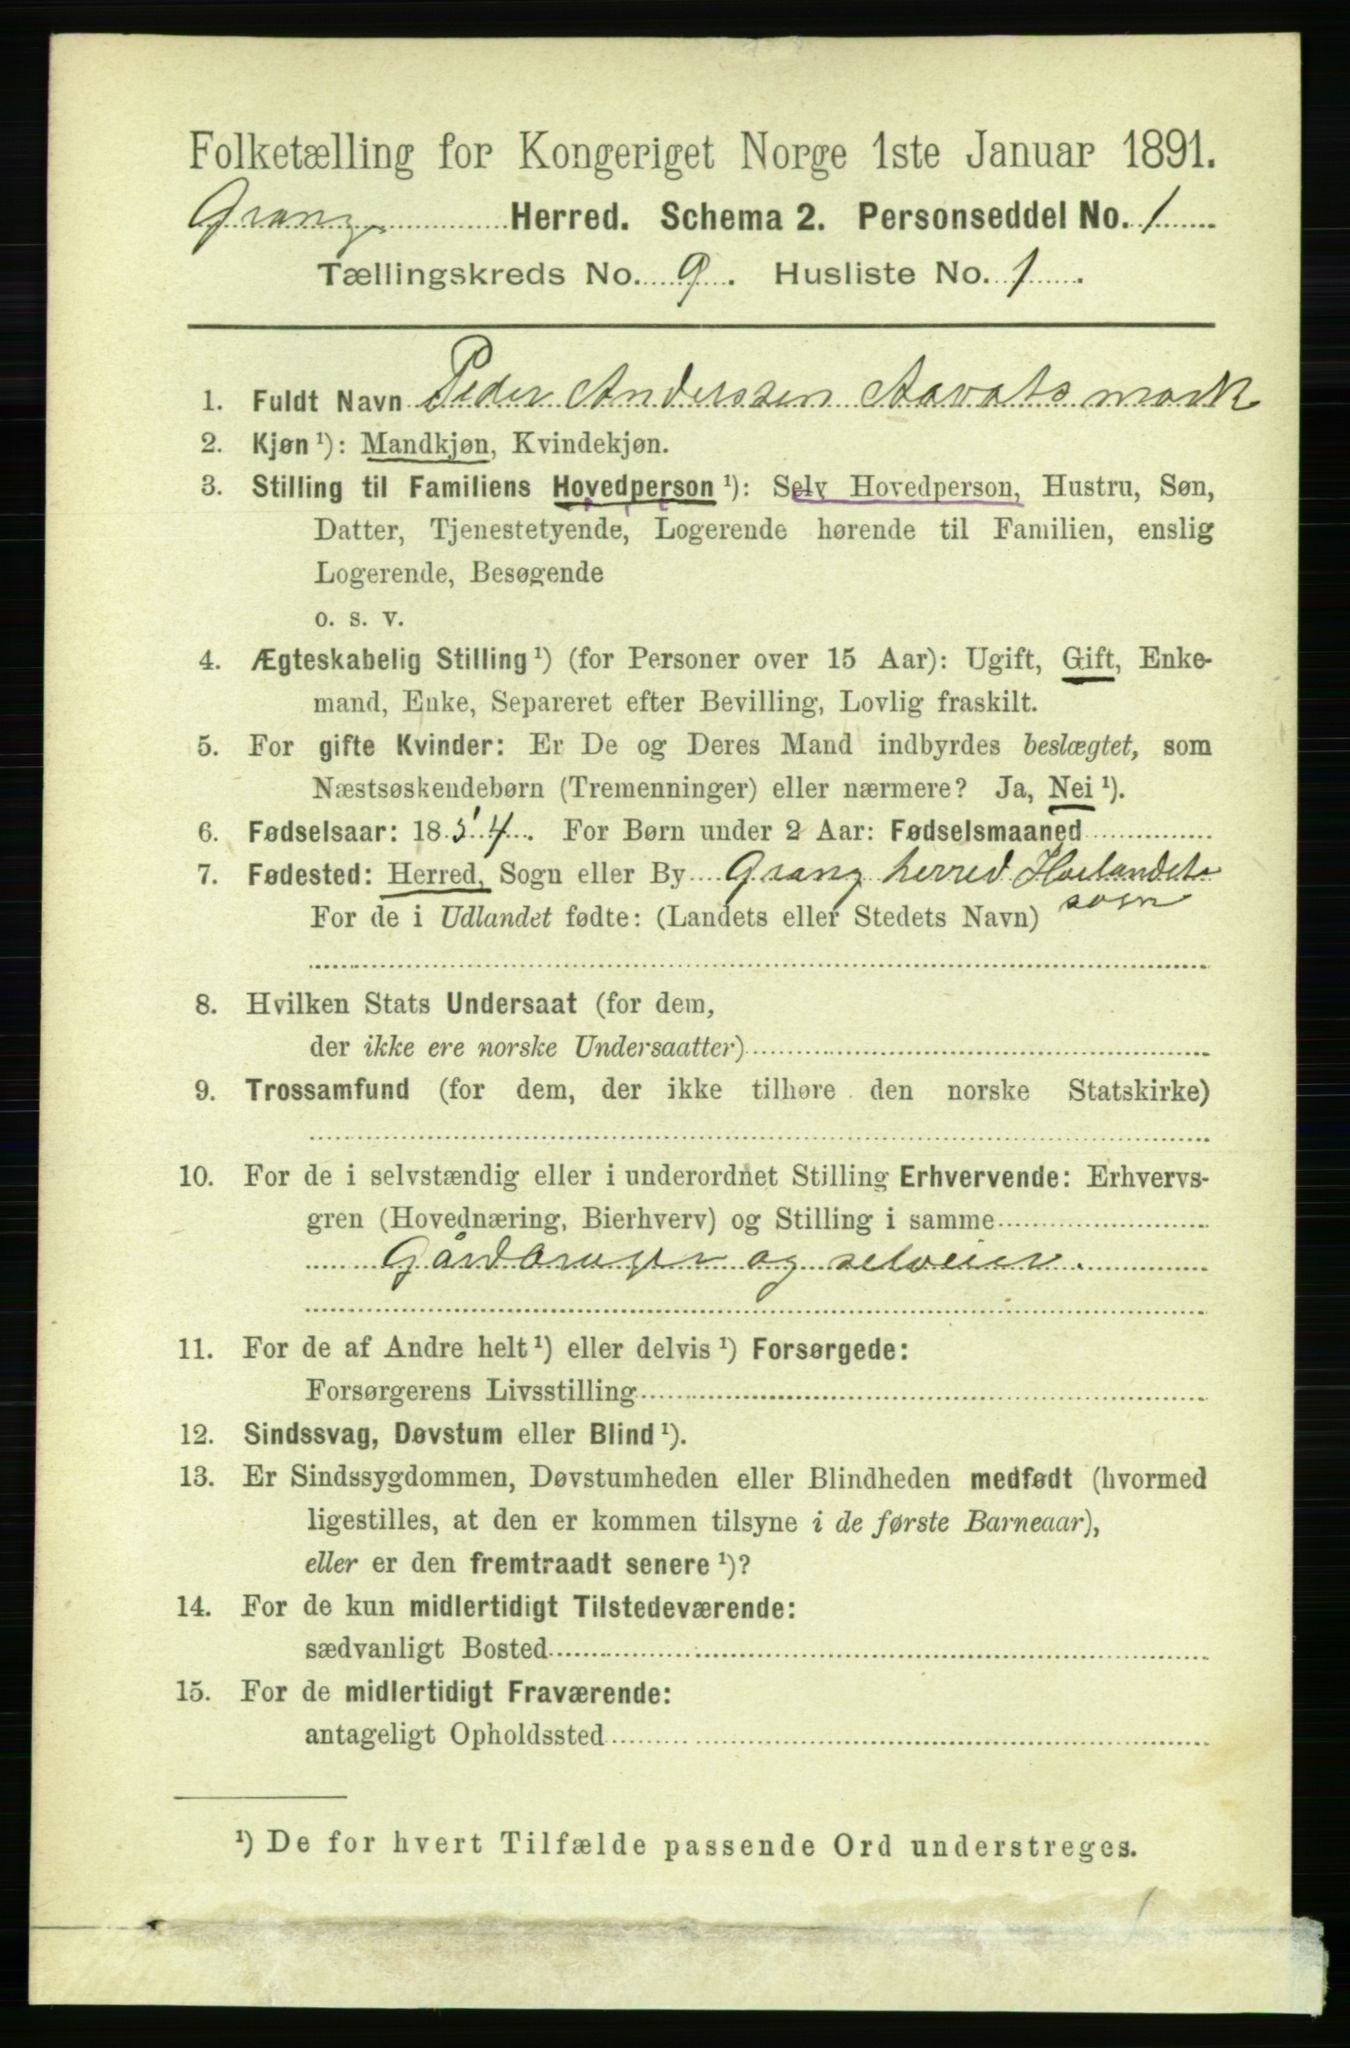 Folketælling for Kongeriget Norge 1ste Januar 1891.
Grong Herred. Schema 2. Personseddel No. 1
Tællingskreds No. 9. Husliste No. 1.
1. Fuldt Navn Peder Anderssen Aavatsmark
2. Kjøn ¹): Mandkjøn, Kvindekjøn.
3. Stilling til Familiens Hovedperson ¹): Selv Hovedperson, Hustru, Søn,
Datter, Tjenestetyende, Logerende hørende til Familien, enslig
Logerende, Besøgende
o. s. v.
4. Ægteskabelig Stilling ¹) (for Personer over 15 Aar): Ugift, Gift, Enke-
mand, Enke, Separeret efter Bevilling, Lovlig fraskilt.
5. For gifte Kvinder: Er De og Deres Mand indbyrdes beslægtet, som
Næstsøskendebørn (Tremenninger) eller nærmere? Ja, Nei ¹).
6. Fødselsaar: 1854. For Børn under 2 Aar: Fødselsmaaned
7. Fødested: Herred, Sogn eller By Grong herred Høilandets
sogn
For de i Udlandet fødte: (Landets eller Stedets Navn)
8. Hvilken Stats Undersaat (for dem,
der ikke ere norske Undersaatter)
9. Trossamfund (for dem, der ikke tilhøre den norske Statskirke)
10. For de i selvstændig eller i underordnet Stilling Erhvervende: Erhvervs-
gren (Hovednæring, Bierhverv) og Stilling i samme
Gårdbruger og selveier.
11. For de af Andre helt ¹) eller delvis ¹) Forsørgede:
Forsørgerens Livsstilling
12. Sindssvag, Døvstum eller Blind ¹).
13. Er Sindssygdommen, Døvstumheden eller Blindheden medfødt (hvormed
ligestilles, at den er kommen tilsyne i de første Barneaar),
eller er den fremtraadt senere ¹)?
14. For de kun midlertidigt Tilstedeværende:
sædvanligt Bosted
15. For de midlertidigt Fraværende:
antageligt Opholdssted
¹) De for hvert Tilfælde passende Ord understreges.